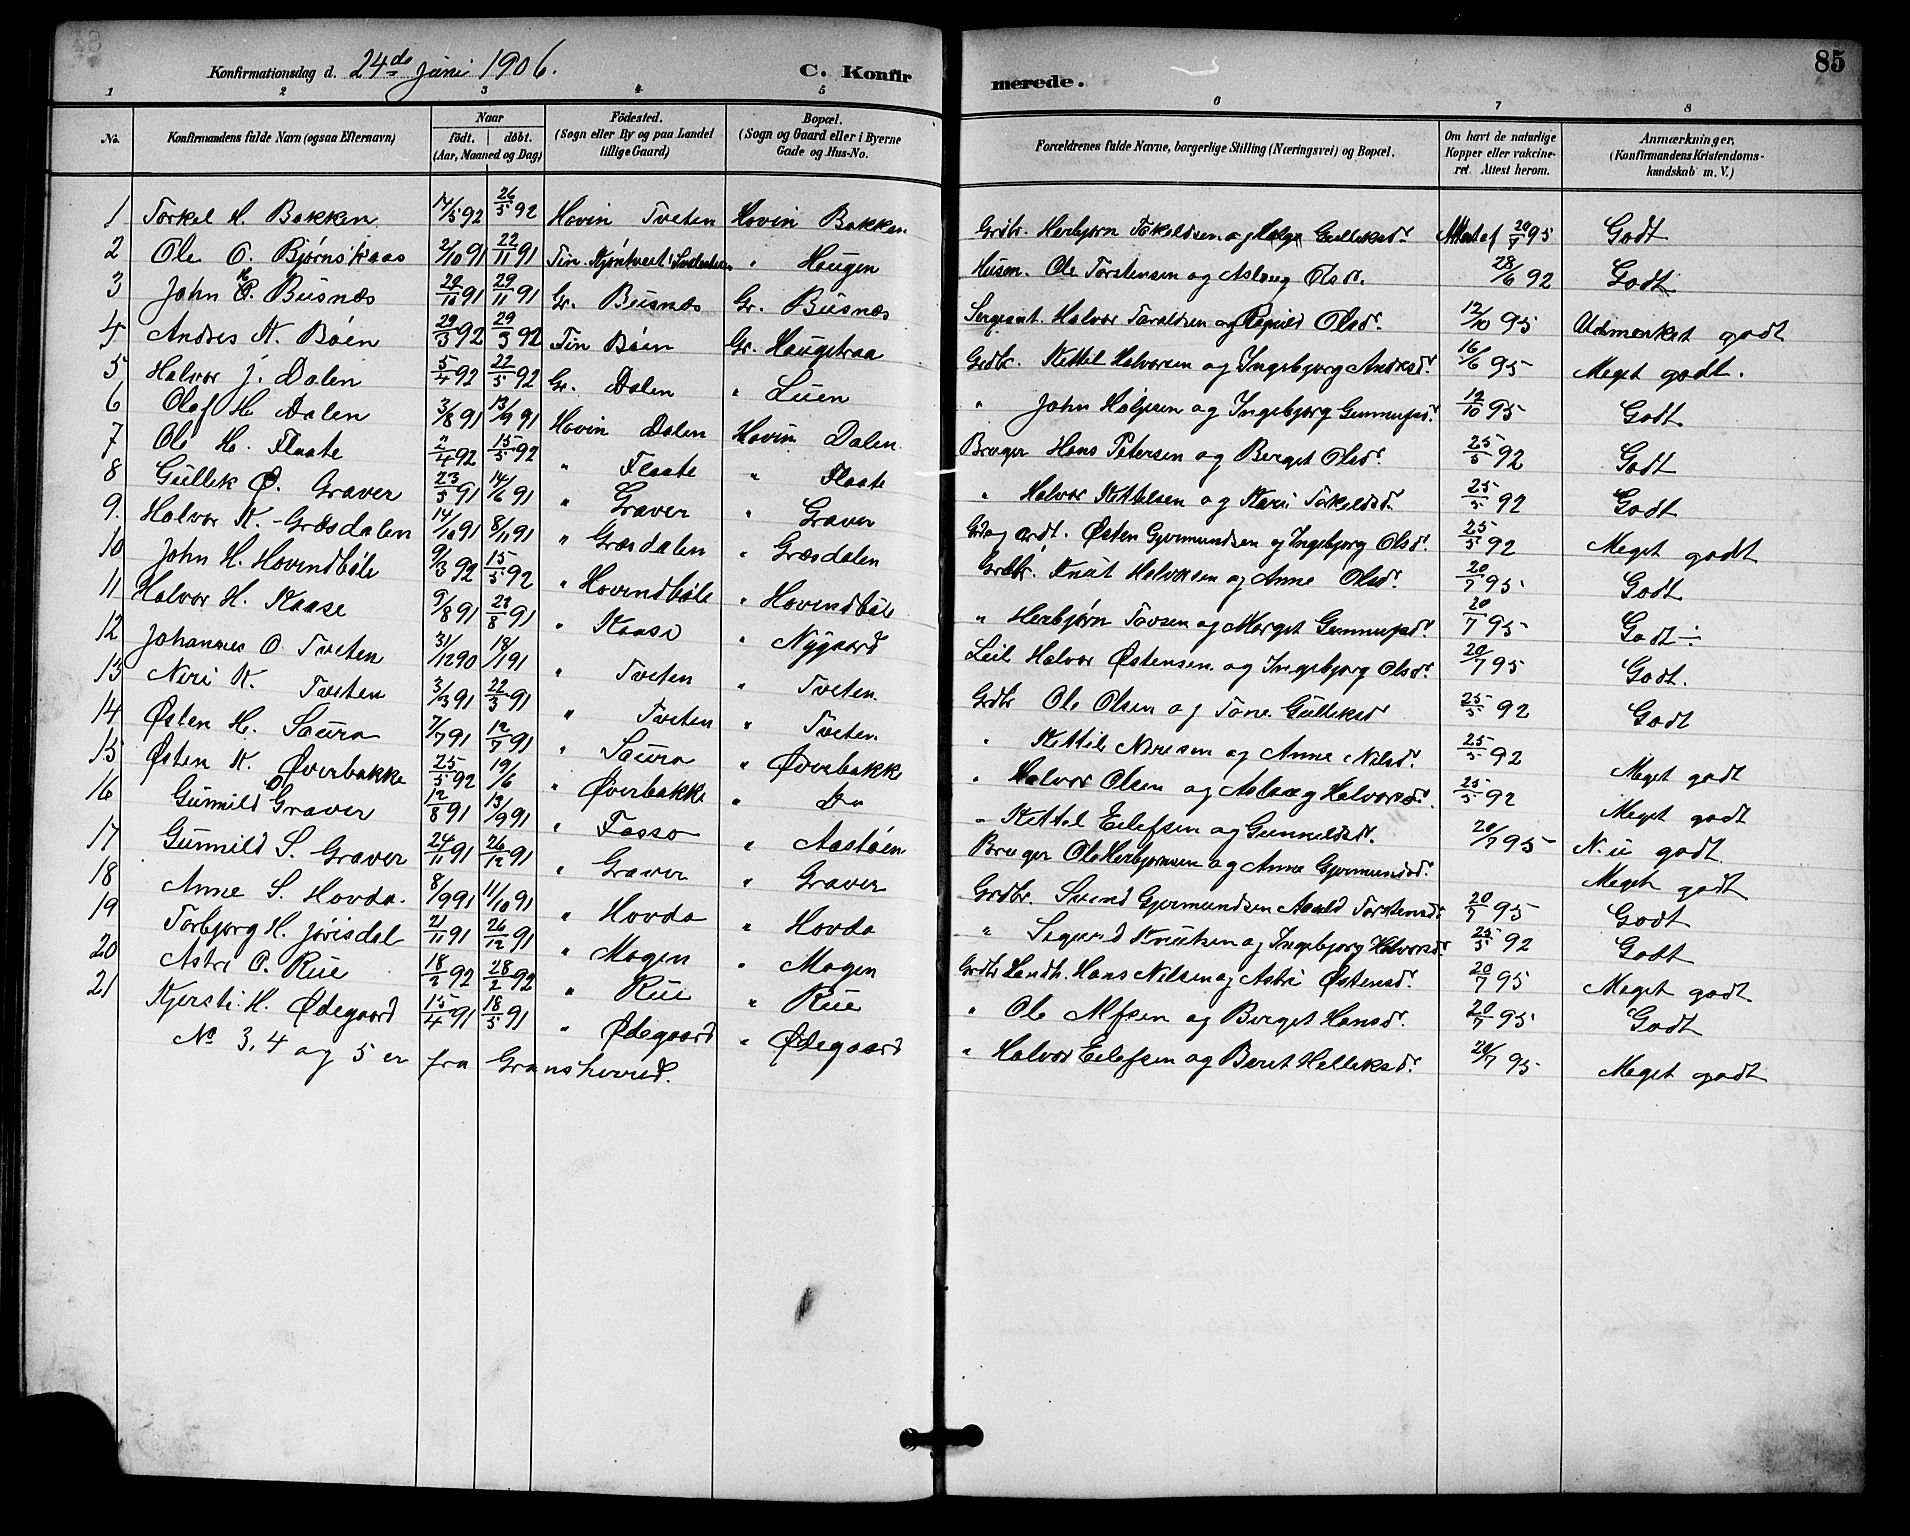 85
Konfirmationsdag d. 24de juni 1906. C. Konfirmerede.
1 2 3 4 5 6 7 8
No. Konfirmandens fulde Navn (ogsaa Efternavn) Naar født. døbt. (Aar, Maaned og Dag) Födested. (Sogn eller By og paa Landet tillige Gaard) Bopæl. (Sogn og Gaard eller i Byerne Gade og Hus-No. Forældrenes fulde Navne, borgerlige Stilling (Næringsvei) og Bopæl. Om havt de naturlige Kopper eller vakcineret. Attest herom. Anmærkninger. (Konfirmandens Kristendomskundskab m. V.)
1 Torkel H. Bakken 14/5 92 26/5 92 Hovin Tveten Hovin Bakken Grdbr. Herbjørn Tokeldsen og Helge Gulleksdr. Attest af 20/7 95 Godt
2 Ole O. Bjørnskaas 2/10 91 22/11 91 Tin. Haugen Husm. Ole Torstensen og Aslaug Olsdr. 28/6 92 Godt
3 John H. Busnæs 20/10 91 29/11 91 Gr. Busnæs Gr. Busnæs Sergeant. Halvor Taraldsen og Ragnild Olsdr. 12/10 95 Udmerket godt
4 Andres K. Bøen 29/3 92 29/3 92 Tin Bøen Gr. Haugetraa Grdbr. Kettil Halvorsen og Ingebjørg Andresdr. 16/6 95 Meget godt.
5 Halvor J. Dalen 5/4 92 22/5 92 Gr. Dalen " Luen " John Halvorsen og Ingebjørg Gunnulfsdr. 12/10 95 Godt
6 Olaf H. Dalen 3/8 91 13/9 91 Hovin Dalen Hovin Dalen Bruger Hans Petersen og Berget Olsdr. 25/5 92 Godt
7 Ole H. Flaate 2/4 92 15/5 92 " Flaate " Flaate " Halvor Kettilsen og Kari Torkeldsdr. 25/5 92 Godt
8 Gullek Ø. Graver 23/5 91 14/6 91 " Graver " Graver Østen Gjermundsen og Ingebjørg Olsdr. 25/5 92 Meget godt
9. Halvor K. Græsdalen 14/10 91 8/11 91 " Græsdalen " Græsdalen Grdbr. Knut Halvorsen og Anne Olsdr. 20/7 95 Godt
10 John H. Hovindbøle 9/3 92 15/5 92 " Hovindbøle " Hovindbøle " Herbjørn Tovsen og Marget Gunnulfsdr. 20/7 95 Godt ÷
11 Halvor H. Kaase 9/8 91 23/8 91 " Kaase " Nygaard Leil. Halvor Østensen og Ingebjørg Olsdr. 20/7 95 Godt.
12 Johannes O. Tveten 31/12 90 18/1 91 " Tveten " Tveten Grdbr Ole Olsen og Tone Gulleksdr 25/5 92 Godt
13 Neri K. Tveten 3/3 91 22/3 91 " Tveten " Tveten " Kettil Nerisen og Anne Nilsdr. 25/5 92 Meget godt
14 Østen H. Saura 7/7 91 12/7 91 " Saura " Øverbakke " Halvor Olsen og Aslaug Halvorsdr. 25/5 92 Meget godt
15 Østen K. Øverbakke 25/5 92 19/6 " Øverbakke " Do " Kettil Eilefsen og Gunnildsdr. 20/7 95 N. u godt
16 Gunnild O Graver 12/8 91 13/9 91 " Fosso " Aastøen Bruger Ole Herbjørnsen og Anne Gjermundsdr. Meget godt
17 Gunnild S. Graver 24/11 91 26/12 91 " Graver " Graver Grdbr. Svend Gjermundsen Torstensdr. 20/7 95 Godt
18 Anne S. Hovda. 8/9 91 11/10 91 " Hovda " Hovda " Sigurd Knutsen og Ingebjørg Halvorsdr. 25/5 92 Godt
19 Torbjørg H. Jørisdal 21/11 91 26/12 91 " Mogen " Mogen Grdbr Landh. Hans Nilsen og Astri Østensdr. 20/7 95 Meget godt
20 Astri O. Rue 18/2 92 28/2 92 " Rue " Rue " Ole Alfsen og Berget Hansdr. 20/7 95 Godt
21 Kjersti H. Ødegaard 15/4 91 18/5 91 " Ødegaard " Ødegaard " Halvor Eilefsen og Beret Helleksdr. 20/7 95 Meget godt
No 3, 4 og 5 er fra Gransherred.